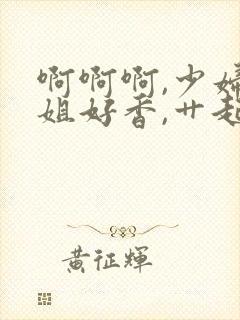 啊啊啊,少婦
姐好香,艹起
黄征輝